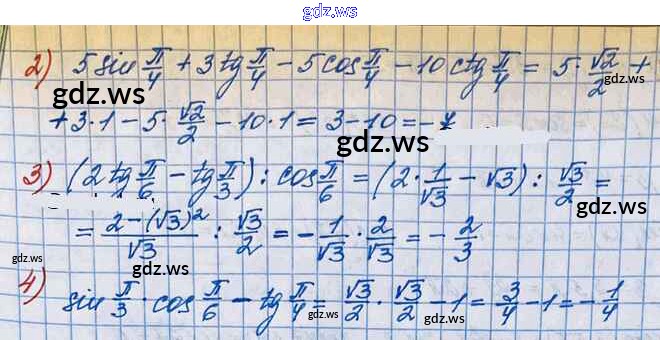 gdz.ws
2) 5 sin π/4 + 3 tg π/4 - 5 cos π/4 - 10 ctg π/4 = 5 · √2/2 +
gdz.ws
+ 3·1 - 5 · √2/2 - 10·1 = 3 - 10 = -7
gdz.ws
3) (2 tg π/6 - tg π/3) : cos π/6 = (2 · 1/√3 - √3) : √3/2 =
gdz.ws
= 2-(√3)²/√3 : √3/2 = - 1/√3 · 2/√3 = - 2/3
gdz.ws
gdz.ws
gdz.ws
4) sin π/3 · cos π/6 - tg π/4 = √3/2 · √3/2 - 1 = 3/4 - 1 = - 1/4
gdz.ws
gdz.ws
gdz.ws